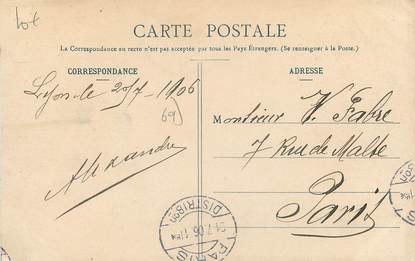 CARTE POSTALE
La Correspondance au recto n'est pas acceptée par tous les Pays Étrangers. (Se renseigner à la Poste.)
CORRESPONDANCE
ADRESSE
Lyon le 20/7 - 1906
69)
Alexandre
Monsieur V. Fabre
7 Rue de Malte
Paris
PARIS
DISTRIBON